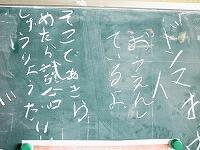 ドンマイ
おうえんし
ているよ
そこであきら
めたら試合
しゅうりょうだ!!